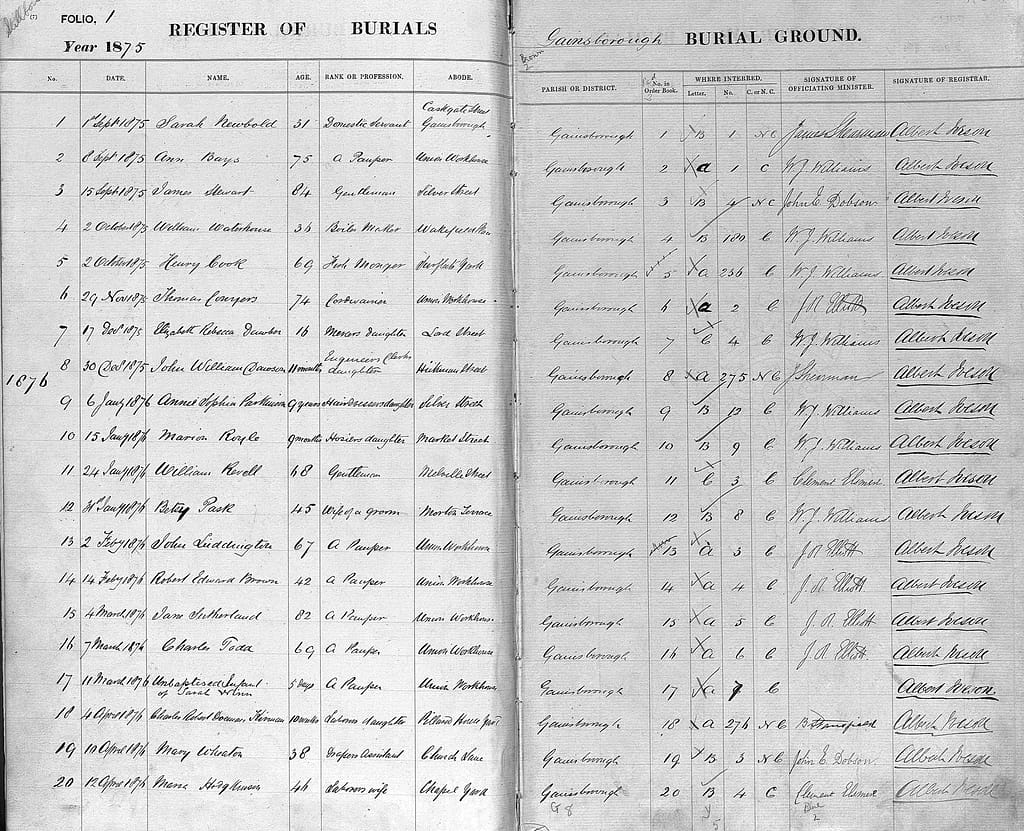 FOLIO, 1
Year 1875
REGISTER OF BURIALS
Gainsborough BURIAL GROUND.
No. DATE. NAME. AGE. RANK OR PROFESSION. ABODE.
PARISH OR DISTRICT. No. in Order Book. WHERE INTERRED. Letter. No. C. or N. C. SIGNATURE OF OFFICIATING MINISTER. SIGNATURE OF REGISTRAR.
1 1st Sept 1875 Sarah Newbold 31 Domestic Servant Caskgate Street Gainsborough Gainsborough 1 B 1 N C James Shearman Albert Iveson
2 8 Sept 1875 Ann Bays 75 A Pauper Union Workhouse Gainsborough 2 a 1 C W. J. Williams Albert Iveson
3 15 Sept 1875 James Stewart 84 Gentleman Silver Street Gainsborough 3 B N C John E Dobson Albert Iveson
4 2 October 1875 William Waterhouse 36 Boiler Maker Gainsborough 4 B 180 C W. J. Williams Albert Iveson
5 2 October 1875 Henry Cook 69 Fish Monger Yard Gainsborough 5 a 256 C W. J. Williams Albert Iveson
6 29 Nov 1875 Thomas Conyers 74 Cordwainer Union Workhouse Gainsborough 6 a 2 C J. R. Elliott Albert Iveson
7 17 Decr 1875 Elizabeth Rebecca 16 daughter Lord Street Gainsborough 7 C 4 C W. J. Williams Albert Iveson
8 30 Decr 1875 John William Dawson 11 months Engineers Clerks daughter Hickman Street Gainsborough 8 a 275 N C J Shearman Albert Iveson
1876
9 6 Jany 1876 Annie Sophia Parkinson 9 years Hairdressers daughter Silver Street Gainsborough 9 B 12 C W. J. Williams Albert Iveson
10 15 Jany 1876 Marion Royle 9 months Hosiers daughter Market Street Gainsborough 10 B 9 C W. J. Williams Albert Iveson
11 24 Jany 1876 William Revell 68 Gentleman Melville Street Gainsborough 11 C 3 C Clement Albert Iveson
12 31st Jany 1876 Betsy Pask 45 Wife of a Groom Terrace Gainsborough 12 B 8 C W. J. Williams Albert Iveson
13 2 Feby 1876 John Luddington 67 A Pauper Union Workhouse Gainsborough 13 a 3 C J. R. Elliott Albert Iveson
14 14 Feby 1876 Robert Edward Brown 42 A Pauper Union Workhouse Gainsborough 14 a 4 C J. R. Elliott Albert Iveson
15 4 March 1876 Jane Sutherland 82 A Pauper Union Workhouse Gainsborough 15 a 5 C J. R. Elliott Albert Iveson
16 7 March 1876 Charles Todd 69 A Pauper Union Workhouse Gainsborough 16 a 6 C J. R. Elliott Albert Iveson
17 11 March 1876 Unbaptised Infant of Sarah Winn 5 days A Pauper Union Workhouse Gainsborough 17 a 7 C Albert Iveson
18 4 April 1876 Charles Robert 10 weeks Labourers daughter Gainsborough 18 a 276 N C Albert Iveson
19 10 April 1876 Mary Wheaton 38 Drapers Assistant Church Lane Gainsborough 19 B 3 N C John E Dobson Albert Iveson
20 12 April 1876 Maria Hodgkinson 46 Labourers wife Chapel Yard Gainsborough 20 B 4 C Clement Albert Iveson